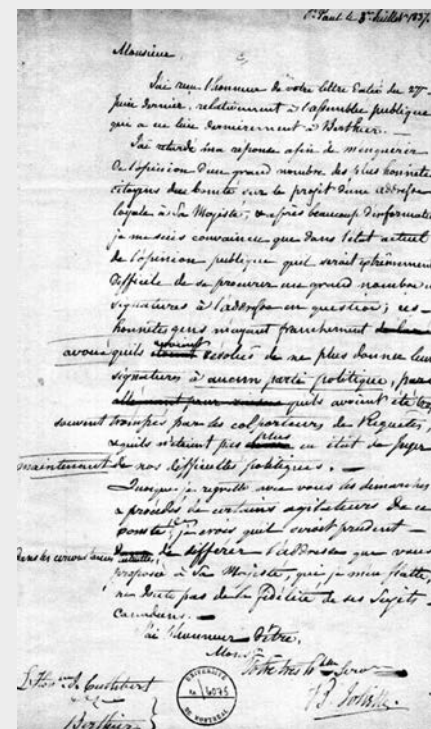 St Paul le 3me Juillet 1837.
Monsieur
J'ai reçu l'honneur de votre lettre datée du 27me
Juin dernier, relativement à l'assemblée publique
qui a eu lieu dernierement à Berthier. —
J'ai retardé ma reponse afin de m'enquerir
de l'opinion d'un grand nombre des plus honnetes
citoyens du comté sur le projet d'une addresse
loyale à Sa Majesté, & après beaucoup d'informati
je me suis convaincu que dans l'état actuel
de l'opinion publique qu'il serait extrêmement
difficile de se procurer un grand nombre de
signatures à l'addresse en question; ces
honnetes gens m'ayant franchement
avoué qu'ils étaient résolus de ne plus donner leur
signatures à aucun parti politique,
qu'ils avoient été trop
souvent trompés par des colporteurs de Requetes,
& qu'ils n'étoient pas plus en état de juger
maintenant de nos difficultés politiques. —
Quoique je regrette avec vous les demarches
& procédés de certains agitateurs de ce
comté, je crois qu'il seroit prudent —
dans les circonstances actuelles de differer l'addresse que vous
proposée à Sa Majesté, qui je m'en flatte,
ne doute pas de la fidélité de ses Sujets
Canadiens. —
J'ai l'honneur d'être,
Monsr
Votre très hble Servr
B. Joliette
L'Honble J. Cuthbert
Berthier
UNIVERSITÉ
4075
DE MONTRÉAL